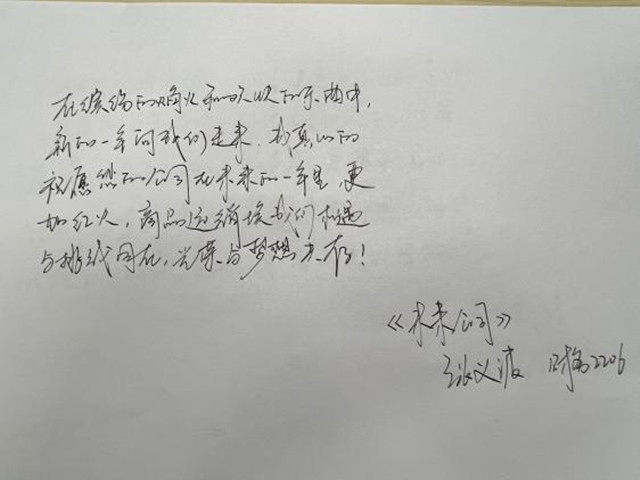 在缤纷的焰火和欢快的乐曲中,
新的一年向我们走来,我真心的
祝愿然的公司在未来的一年里,更
加红火,商品远销埃我们机遇
与挑战同在,光荣与梦想共存!
《未来公司》
张义波 2206